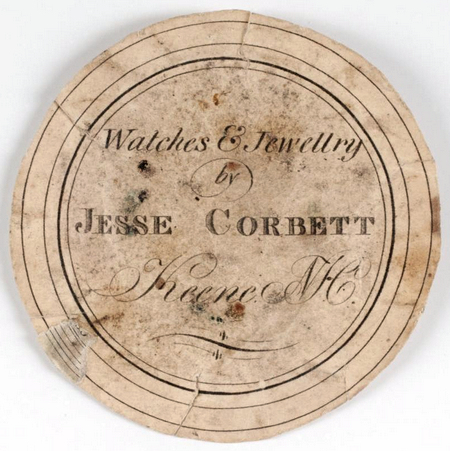 Watches & Jewellry
by
JESSE CORBETT
Keene N.H.